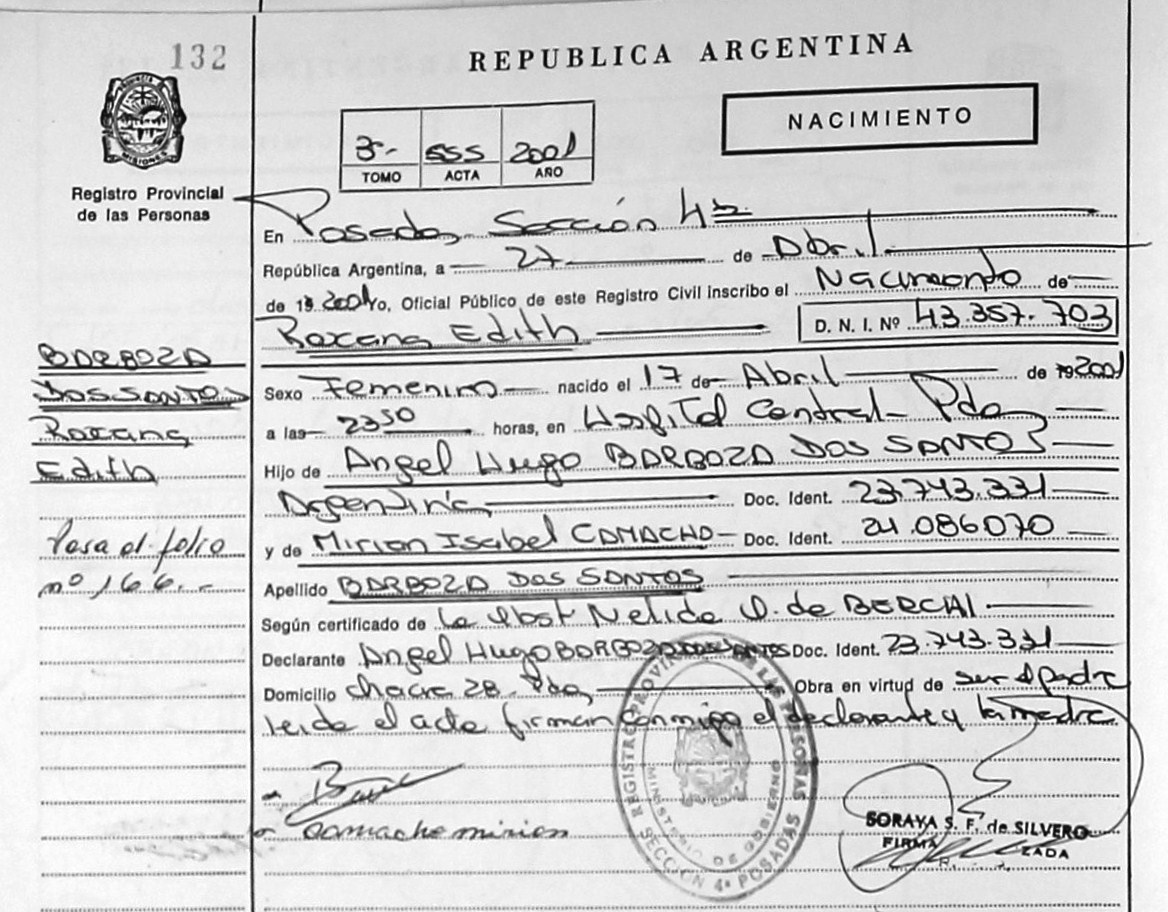 132
REPUBLICA ARGENTINA
NACIMIENTO
3-.- 555 2001
TOMO ACTA AÑO
PROVINCIA DE MISIONES
Registro Provincial
de las Personas
En Posadas, Sección 4ta
República Argentina, a 27 de Abril
de 19 2001 Yo, Oficial Público de este Registro Civil inscribo el Nacimiento de
Roxana Edith D. N. I. Nº 43.357.703
BARBOZA
DOS SANTOS
Roxana
Edith
Sexo Femenino nacido el 17 de Abril de 19 2001
a las 2350 horas, en Hospital Central - Pdas
Hijo de Angel Hugo BARBOZA DOS SANTOS
Argentina Doc. Ident. 23.743.331
y de Mirian Isabel CAMACHO - Doc. Ident. 24.086070
Pasa al folio
nº 166.-
Apellido BARBOZA DOS SANTOS
Según certificado de la Obst Nelida de
Declarante Angel Hugo BARBOZA DOS SANTOS Doc. Ident. 23.743.331
Domicilio chacra 28 - Pdas Obra en virtud de ser el padre
leida el acta firman conmigo el declarante y la madre
camacho mirian
REGISTRO PROVINCIAL DE LAS PERSONAS
MINISTERIO DE GOBIERNO
SECCION 4ª POSADAS
SORAYA S. F. de SILVERO
FIRMA ZADA